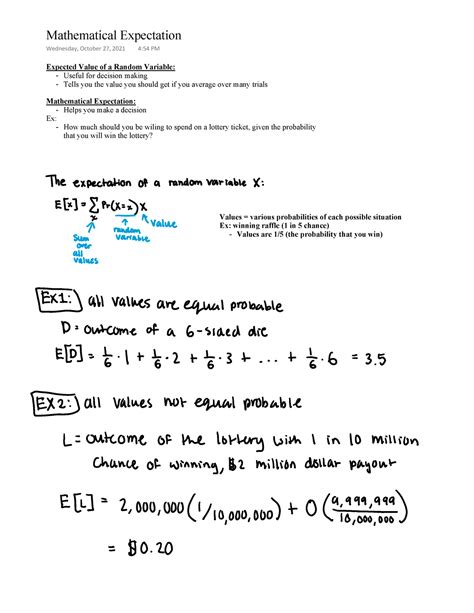 Mathematical Expectation
Wednesday, October 27, 2021 4:54 PM
Expected Value of a Random Variable:
- Useful for decision making
- Tells you the value you should get if you average over many trials
Mathematical Expectation:
- Helps you make a decision
Ex:
- How much should you be wiling to spend on a lottery ticket, given the probability
that you will win the lottery?
The expectation of a random variable X:
E[X] = ∑ Pr(X=x) X
x
Sum over all values
random variable
Value
Values = various probabilities of each possible situation
Ex: winning raffle (1 in 5 chance)
- Values are 1/5 (the probability that you win)
EX1: all values are equal probable
D = outcome of a 6-sided die
E[D] = 1/6 · 1 + 1/6 · 2 + 1/6 · 3 + ... + 1/6 · 6 = 3.5
EX2: all values not equal probable
L = outcome of the lottery with 1 in 10 million
chance of winning, $2 million dollar payout
E[L] = 2,000,000 (1/10,000,000) + 0 (9,999,999/10,000,000)
= $0.20